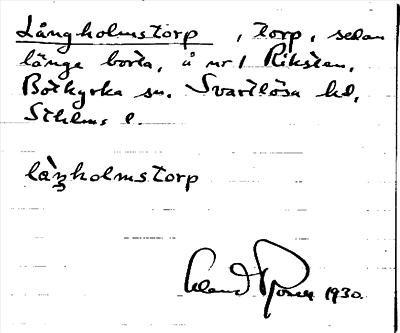 Långholmstorp, torp, sedan
länge borta, å nr 1 Riksten,
Botkyrka sn. Svartlösa hd,
Sthlms l.
lå̀ŋholmstorp
1930.